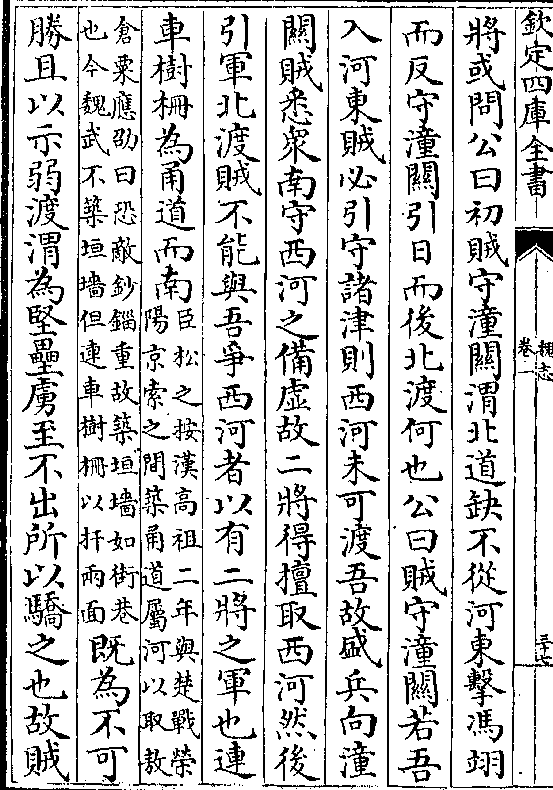 欽定四庫全書
魏志
卷一
三十七
將或問公曰初賊守潼關渭北道缺不從河東擊馮翊
而反守潼關引日而後北渡何也公曰賊守潼關若吾
入河東賊必引守諸津則西河未可渡吾故盛兵向潼
關賊悉衆南守西河之備虛故二將得擅取西河然後
引軍北渡賊不能與吾爭西河者以有二將之軍也連
車樹柵為甬道而南
臣松之按漢高祖二年與楚戰榮
陽京索之間築甬道屬河以取敖
倉粟應劭曰恐敵鈔錙重故築垣墻如街巷
也今魏武不築垣墻但連車樹柵以扞兩面
既為不可
勝且以示弱渡渭為堅壘虜至不出所以驕之也故賊